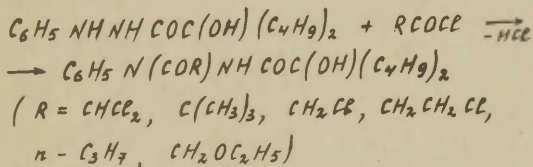 C₆H₅ NHNH COC(OH)(C₄H₉)₂ + RCOCl —HCl→
→ C₆H₅ N(COR)NH COC(OH)(C₄H₉)₂
( R = CHCl₂, C(CH₃)₃, CH₂Cl, CH₂CH₂Cl,
n - C₃H₇, CH₂OC₂H₅)